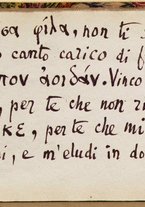 σα φίλα, non ti
canto carico di
πον ἀοιδάν. Vinco
, per te che non
κε, per te che mi
i, e m'eludi in do